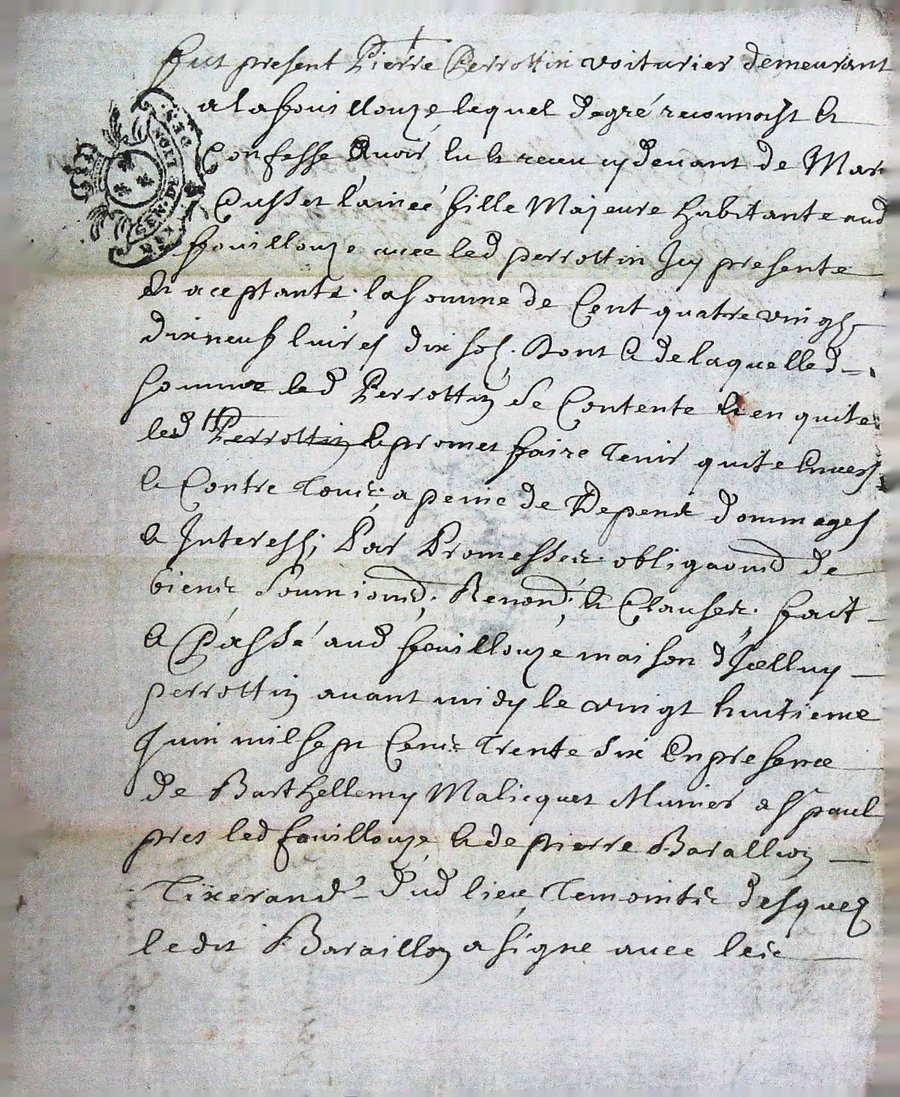 fut present Pierre Perrottin voiturier demeurant
a la fouillouze lequel de gré reconnoist &
Confesse avoir eu & receu cy devant de Mar
Cusset l'ainée fille Majeure habitante aud
fouillouze avec led perrottin Icy presente
& aceptante, la somme de Cent quatre vingt
dix neuf livres dix sols. Dont & de laquelle d
somme led Perrottin se Contente & en quite
led Perrottin & promet faire tenir quite Envers
& Contre tous, a peine de Depens dommages
& Interests, Par Promesses obligaond de
biens soumiond. Renond. & Clauses. fait
& Passé aud fouillouze maison d'Icelluy
perrottin avant midy le vingt huitieme
Juin mil sept Cens trente six En presence
de Barthellemy Malicquet Munier a St paul
pres led fouillouze, & de pierre Baraillon
Tixerand dud lieu, temoins desquels
le dit Baraillon a signe avec les
GEN. DE LION